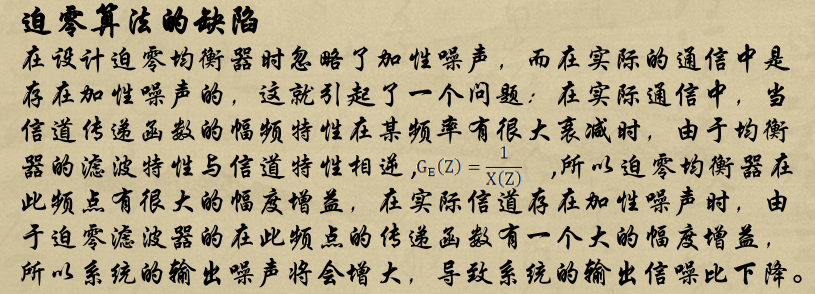 迫零算法的缺陷
在设计迫零均衡器时忽略了加性噪声，而在实际的通信中是
存在加性噪声的，这就引起了一个问题：在实际通信中，当
信道传递函数的幅频特性在某频率有很大衰减时，由于均衡
器的滤波特性与信道特性相逆,G_E(Z) = 1/X(Z) ,所以迫零均衡器在
此频点有很大的幅度增益，在实际信道存在加性噪声时，由
于迫零滤波器的在此频点的传递函数有一个大的幅度增益，
所以系统的输出噪声将会增大，导致系统的输出信噪比下降。